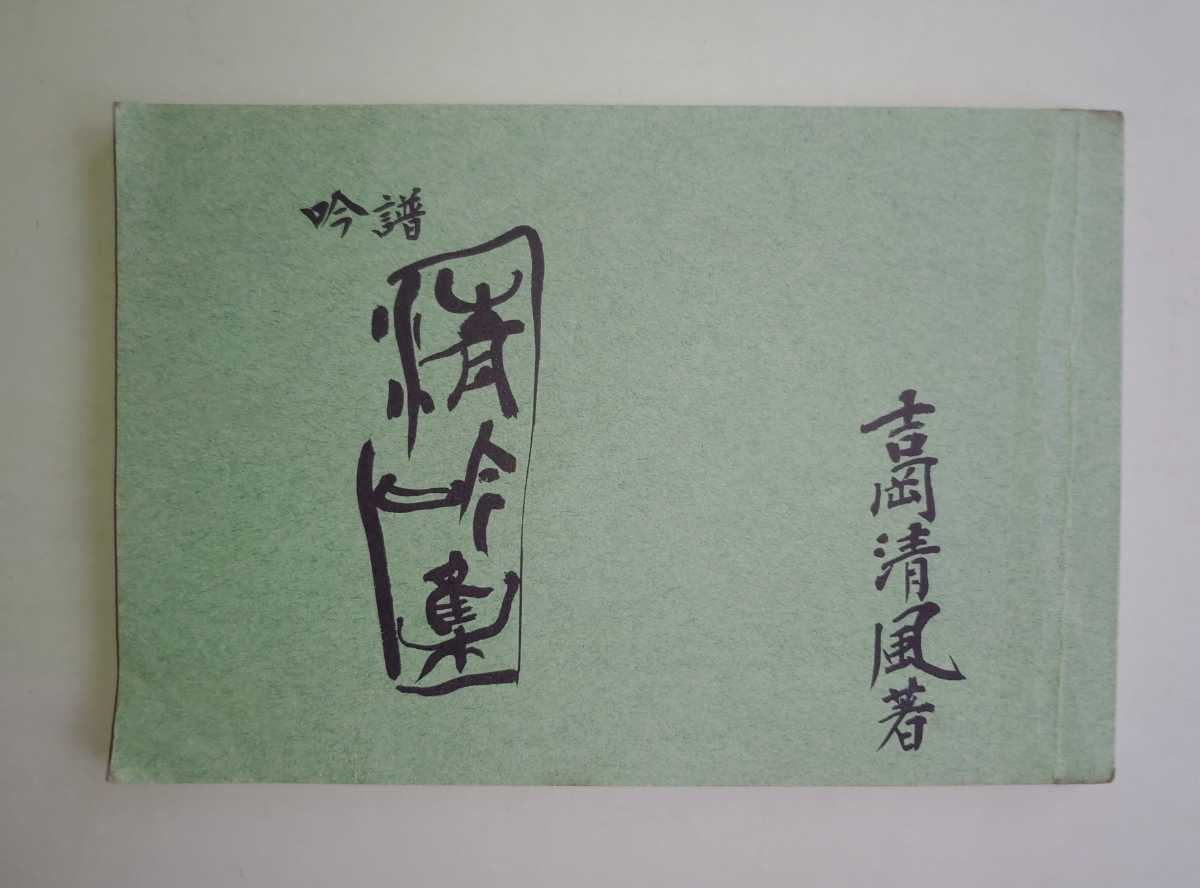 吉岡清風著
吟譜
清吟集